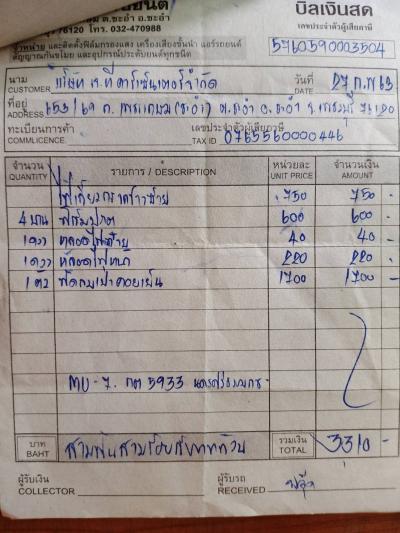 บิลเงินสด
ต.ชะอำ อ.ชะอำ
76120 โทร. 032-470988
เลขประจำตัวผู้เสียภาษี
จำหน่าย และติดตั้งฟิล์มกรองแสง เครื่องเสียงชั้นนำ แอร์รถยนต์
สัญญาณกันขโมย และอุปกรณ์ประดับยนต์ทุกชนิด
5760590003504
นาม
CUSTOMER บริษัท
วันที่
DATE 27 ก.พ 63
ที่อยู่
ADDRESS 653/69 ถ. เพชรเกษม (ชะอำ) ต.ชะอำ อ.ชะอำ จ.เพชรบุรี 76120
ทะเบียนการค้า
COMMLICENCE.
เลขประจำตัวผู้เสียภาษี
TAX ID 0765560000446
จำนวน
QUANTITY
รายการ / DESCRIPTION
หน่วยละ
UNIT PRICE
จำนวนเงิน
AMOUNT
750 750 -
4 บาน 600 600 -
1 ดวง หลอดไฟท้าย 40 40 -
1 ดวง หลอดไฟหน้า 220 220 -
1 ตัว พัดลมเป่าคอยเย็น 1700 1700 -
MU-7. กต 5933
บาท
BAHT สามพันสามร้อยสิบบาทถ้วน
รวมเงิน
TOTAL 3310 -
ผู้รับเงิน
COLLECTOR
ผู้รับรถ
RECEIVED